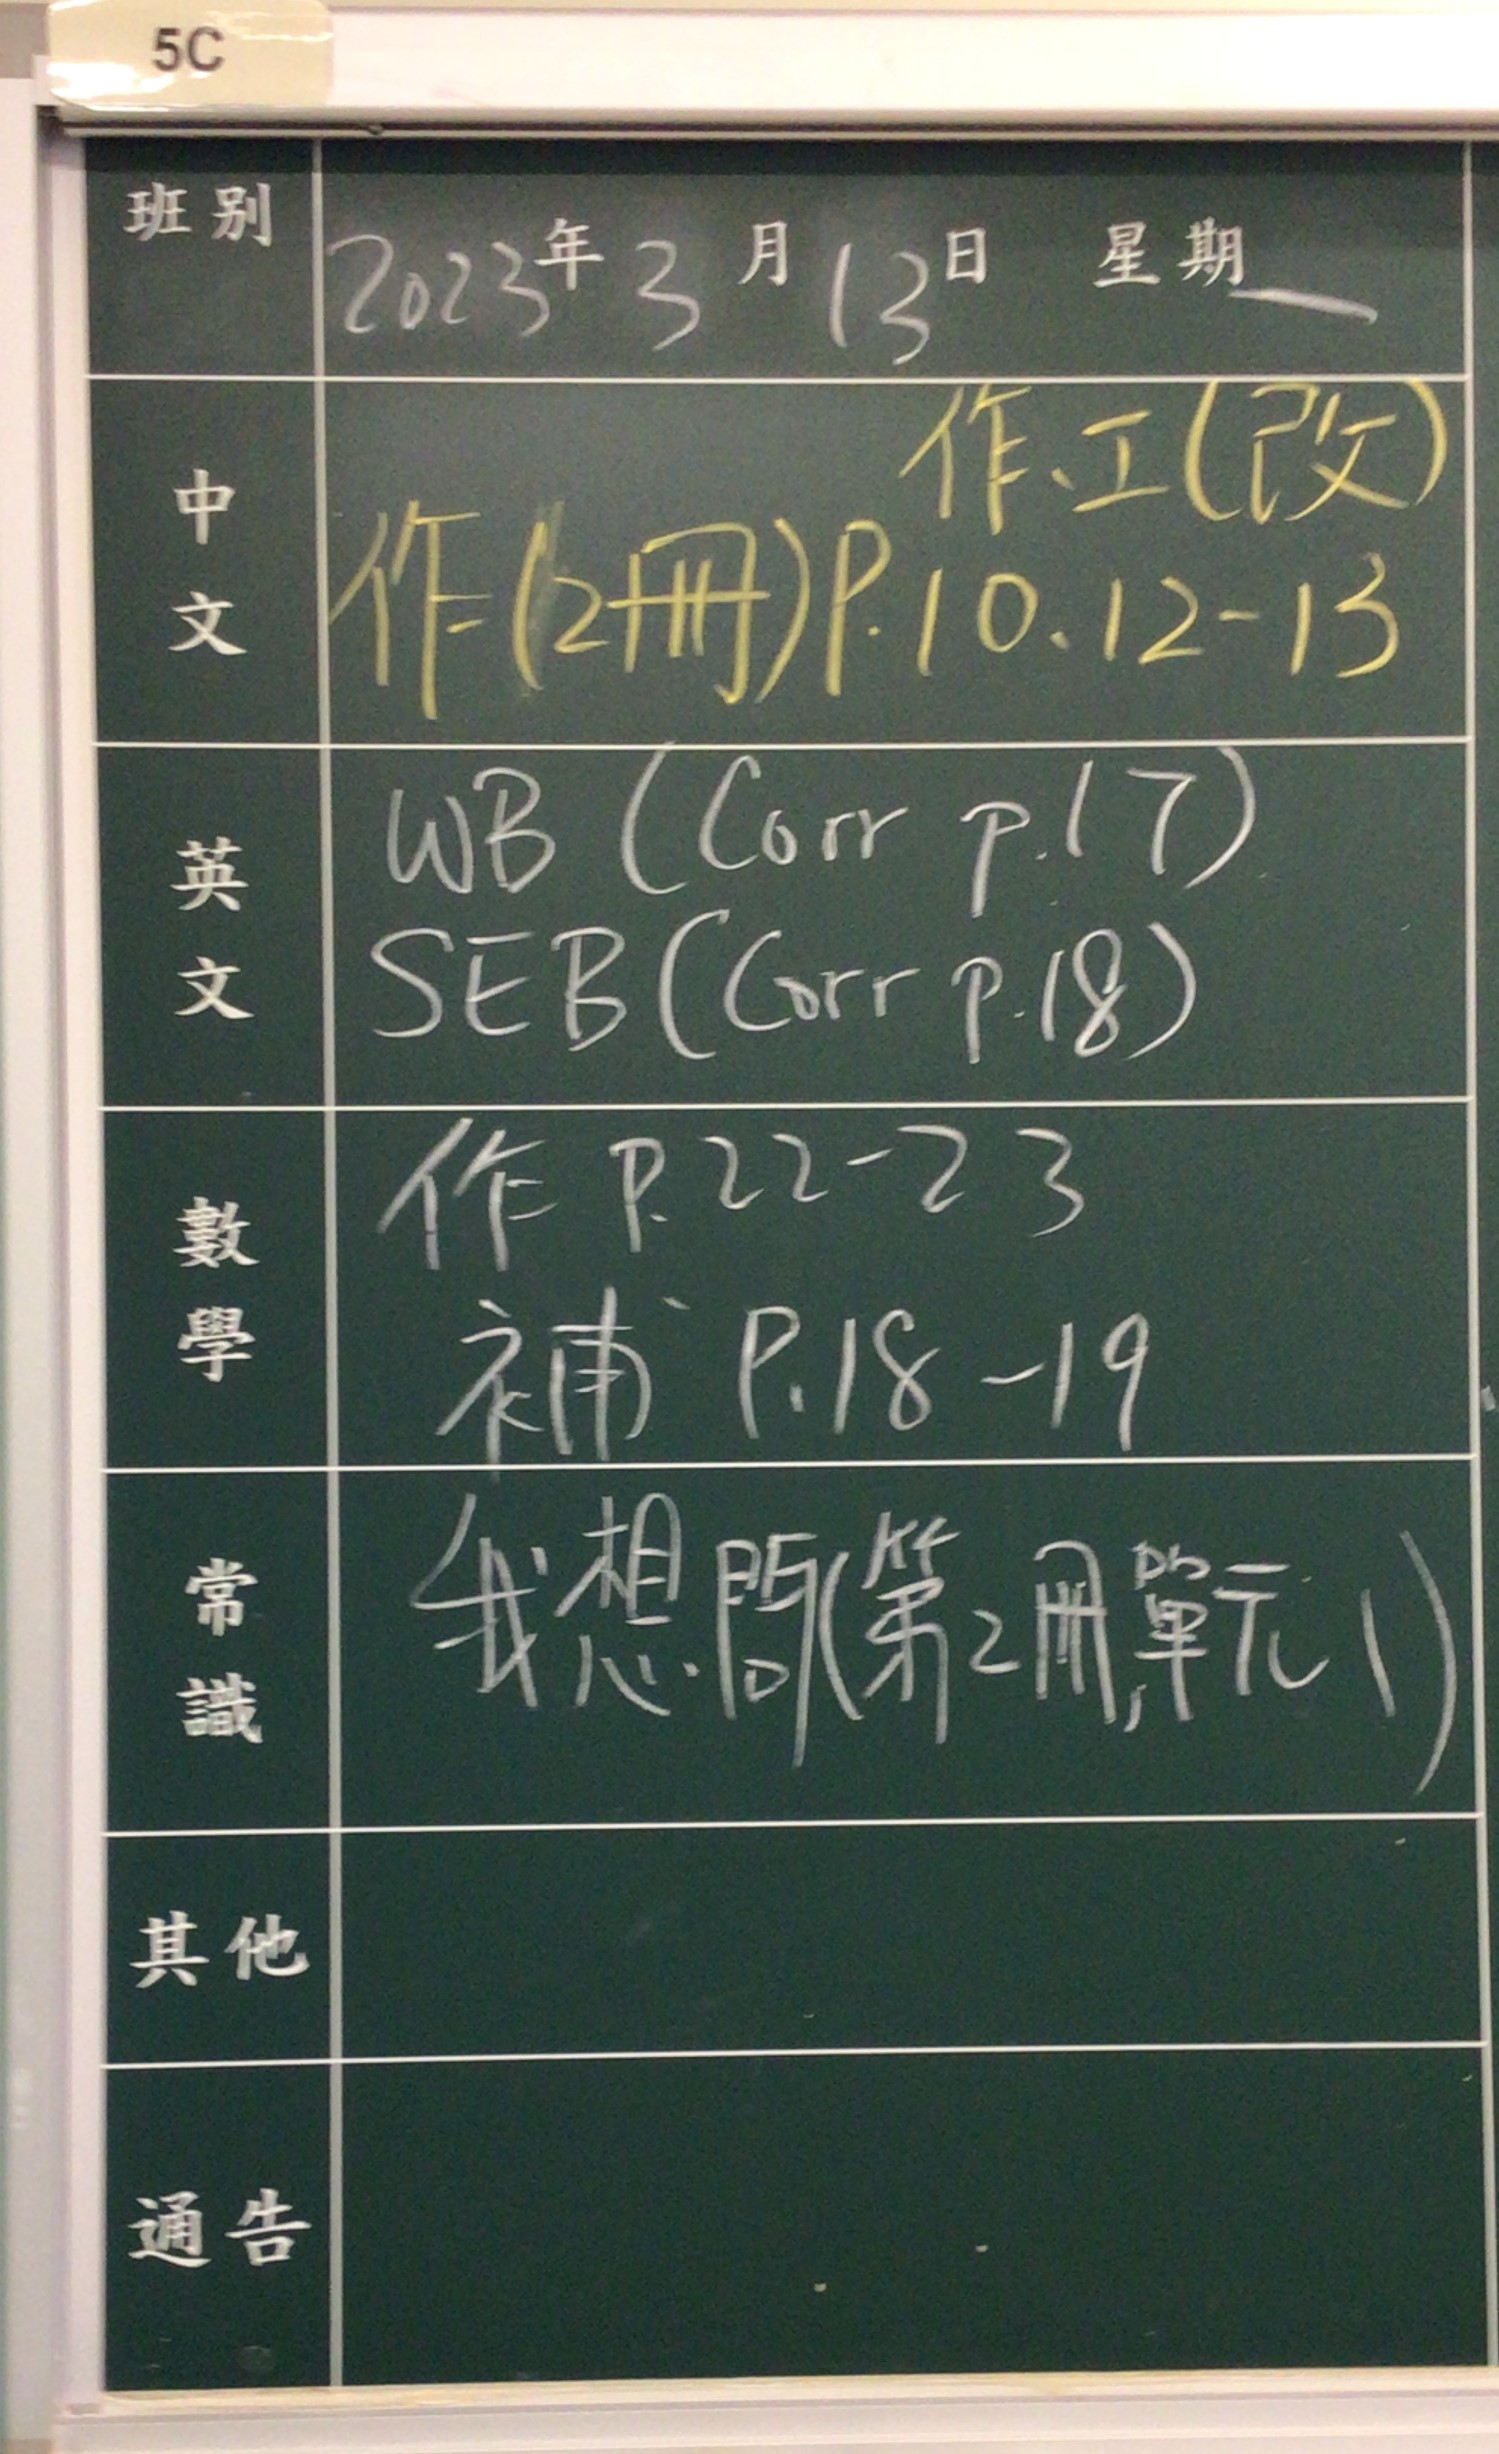 5C
班別 2023年3月13日 星期一
作、工(改)
中文 作(2冊)P.10、12-13
英文 WB (Corr p.17)
SEB (Corr p.18)
數學 作 P.22-23
補 P.18-19
常識 我想問(第2冊,單元1)
其他
通告